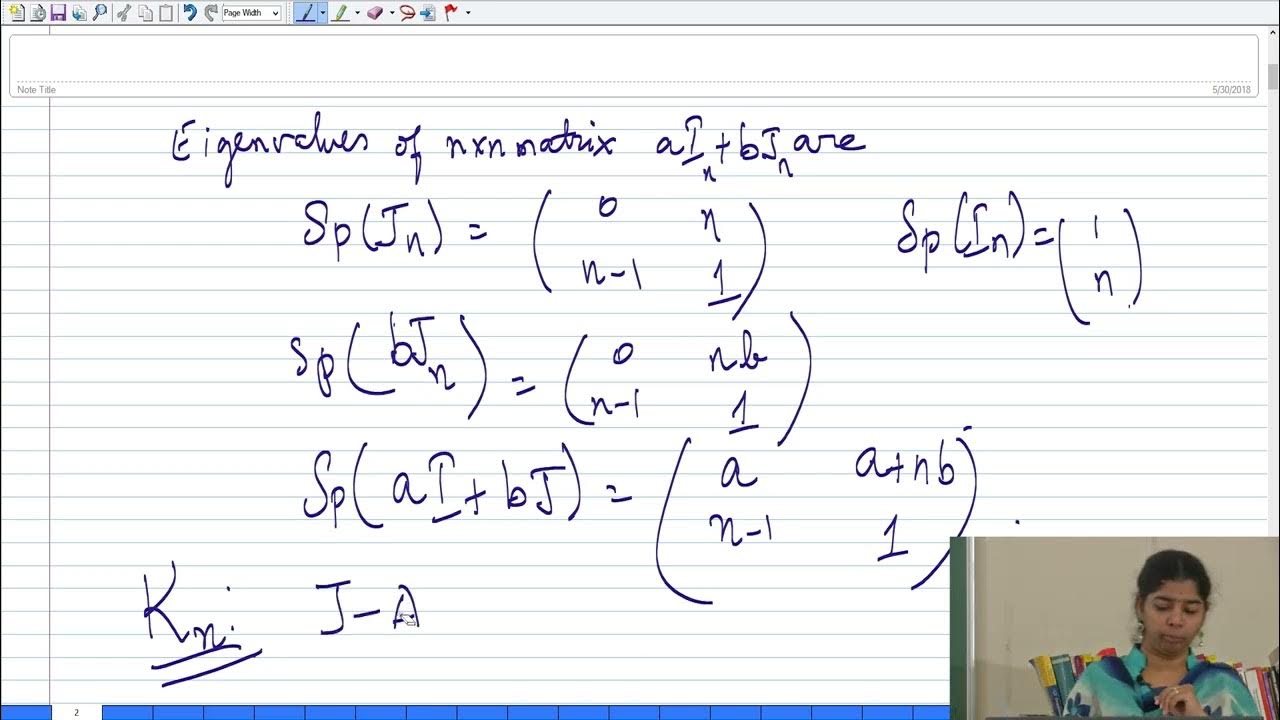 Page Width
Note Title
5/30/2018
Eigenvalues of n×n matrix aIₙ + bJₙ are
Sp(Jₙ) = ( 0 n
n-1 1 )
Sp(Iₙ) = ( 1
n )
Sp(bJₙ) = ( 0 nb
n-1 1 )
Sp(aI + bJ) = ( a a+nb
n-1 1 ).
Kₙ: J - A
2